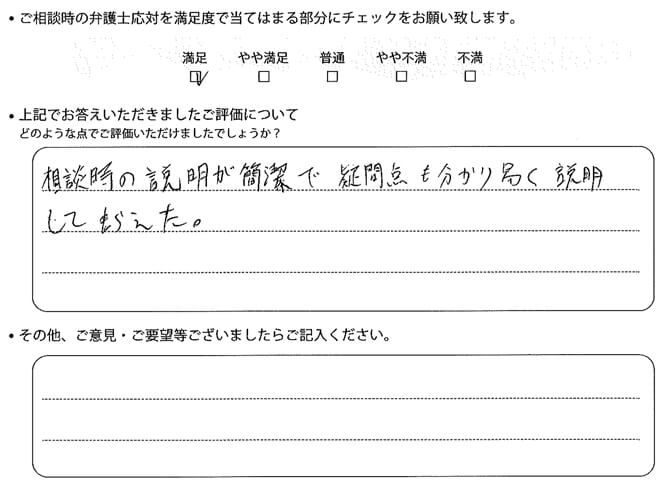 • ご相談時の弁護士応対を満足度で当てはまる部分にチェックをお願い致します。
満足 やや満足 普通 やや不満 不満
☑ □ □ □ □
• 上記でお答えいただきましたご評価について
どのような点でご評価いただけましたでしょうか？
相談時の説明が簡潔で疑問点も分かり易く説明
してもらえた。
• その他、ご意見・ご要望等ございましたらご記入ください。